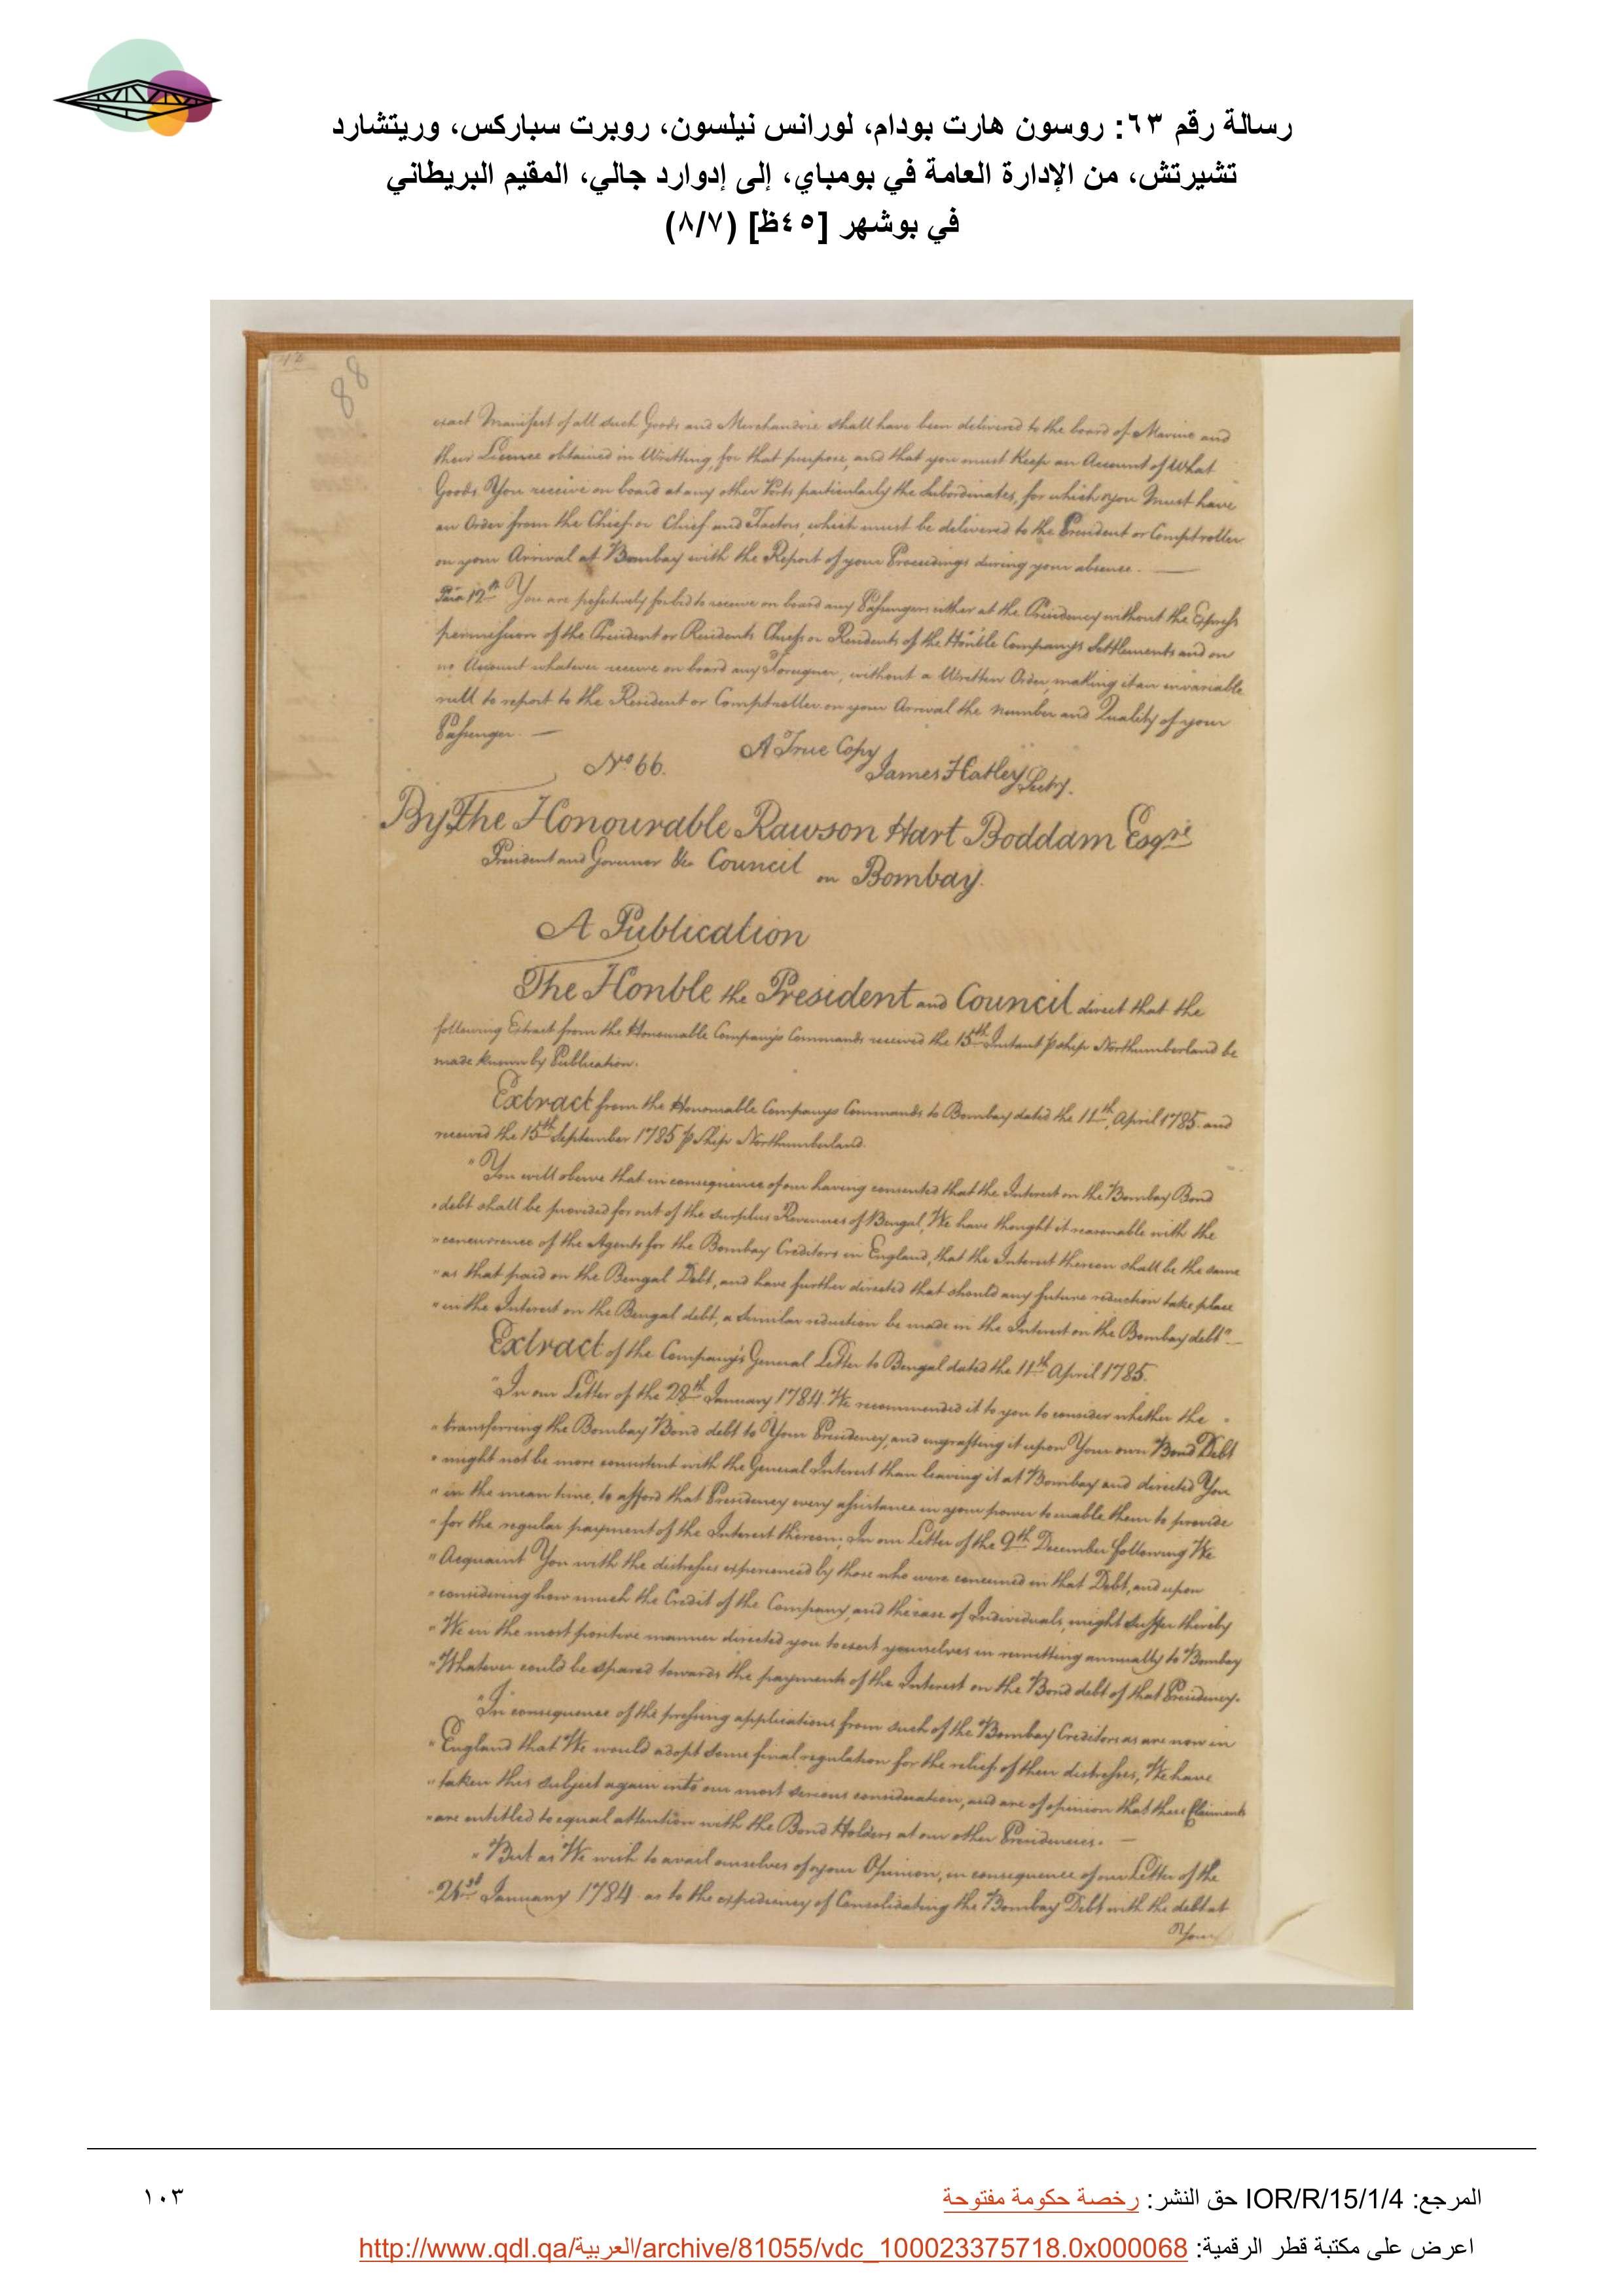 رسالة رقم ٦٣: روسون هارت بودام، لورانس نيلسون، روبرت سباركس، وريتشارد
تشيرتش، من الإدارة العامة في بومباي، إلى إدوارد جالي، المقيم البريطاني
في بوشهر [٤٥ظ] (٨/٧)
88
exact Manifest of all such Goods and Merchandize shall have been delivered to the board of Marine and
their Licence obtained in Writting, for that purpose, and that you must Keep an Account of What
Goods You receive on board at any other Ports particularly the Subordinates, for which you Must have
an Order from the Chief or Chief and Factors, which must be delivered to the President or Comptroller
on your Arrival at Bombay with the Report of your Proceedings during your absence.
Para 12th You are possitively forbid to receive on board any Passengers either at the Presidency without the Express
permission of the President or Residents Chiefs or Residents of the Honble Companys Settlements and on
no Account whatever receive on board any Foreigner, without a Written Order, making it an invariable
rull to report to the Resident or Comptroller on your Arrival the Number and Quality of your
Passenger. —
A True Copy
No 66.
James Hatley Secty.
By The Honourable Rawson Hart Boddam Esqre
President and Governor &ca Council on Bombay.
A Publication
The Honble the President and Council direct that the
following Extract from the Honourable Company's Commands received the 15th Instant p ship Northumberland be
made known by Publication.
Extract from the Honourable Companys Commands to Bombay dated the 11th April 1785. and
received the 15th September 1785 p Ship Northumberland.
"You will observe that in consequence of our having consented that the Interest on the Bombay Bond
"debt shall be provided for out of the surplus Revenues of Bengal, We have thought it reasonable with the
"concurrence of the Agents for the Bombay Creditors in England, that the Interest thereon shall be the same
"as that paid on the Bengal Debt, and have further directed that should any future reduction take place
"in the Interest on the Bengal debt, a similar reduction be made in the Interest on the Bombay debt"—
Extract of the Company's General Letter to Bengal dated the 11th April 1785.
"In our Letter of the 28th January 1784 We recommended it to you to consider whether the
"transferring the Bombay Bond debt to Your Presidency, and engrafting it upon Your own Bond Debt
"might not be more consistent with the General Interest than leaving it at Bombay and directed You
"in the mean time, to afford that Presidency every assistance in your power to enable them to provide
"for the regular payment of the Interest thereon; In our Letter of the 9th December following We
"Acquaint You with the distresses experienced by those who were concerned in that Debt, and upon
"considering how much the Credit of the Company, and the case of Individuals, might suffer thereby
"We in the most positive manner directed you to exert yourselves in remitting annually to Bombay
"Whatever could be spared towards the payments of the Interest on the Bond debt of that Presidency.
"In consequence of the pressing applications from such of the Bombay Creditors as are now in
"England that We would adopt some final regulation for the relief of their distresses, We have
"taken this subject again into our most serious consideration, and are of opinion that these Claimants
"are entitled to equal attention with the Bond Holders at our other Presidencies. —
"But as We wish to avail ourselves of your Opinion, in consequence of our Letter of the
January 1784 as to the expediency of Consolidating the Bombay Debt with the debt at
Your
المرجع: IOR/R/15/1/4 حق النشر: رخصة حكومة مفتوحة
١٠٣
اعرض على مكتبة قطر الرقمية: http://www.qdl.qa/العربية/archive/81055/vdc_100023375718.0x000068